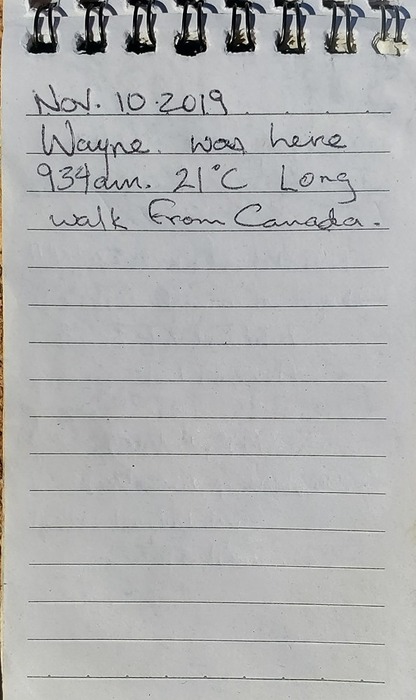 Nov. 10.2019
Wayne. was here
934am. 21°C Long
walk from Canada.